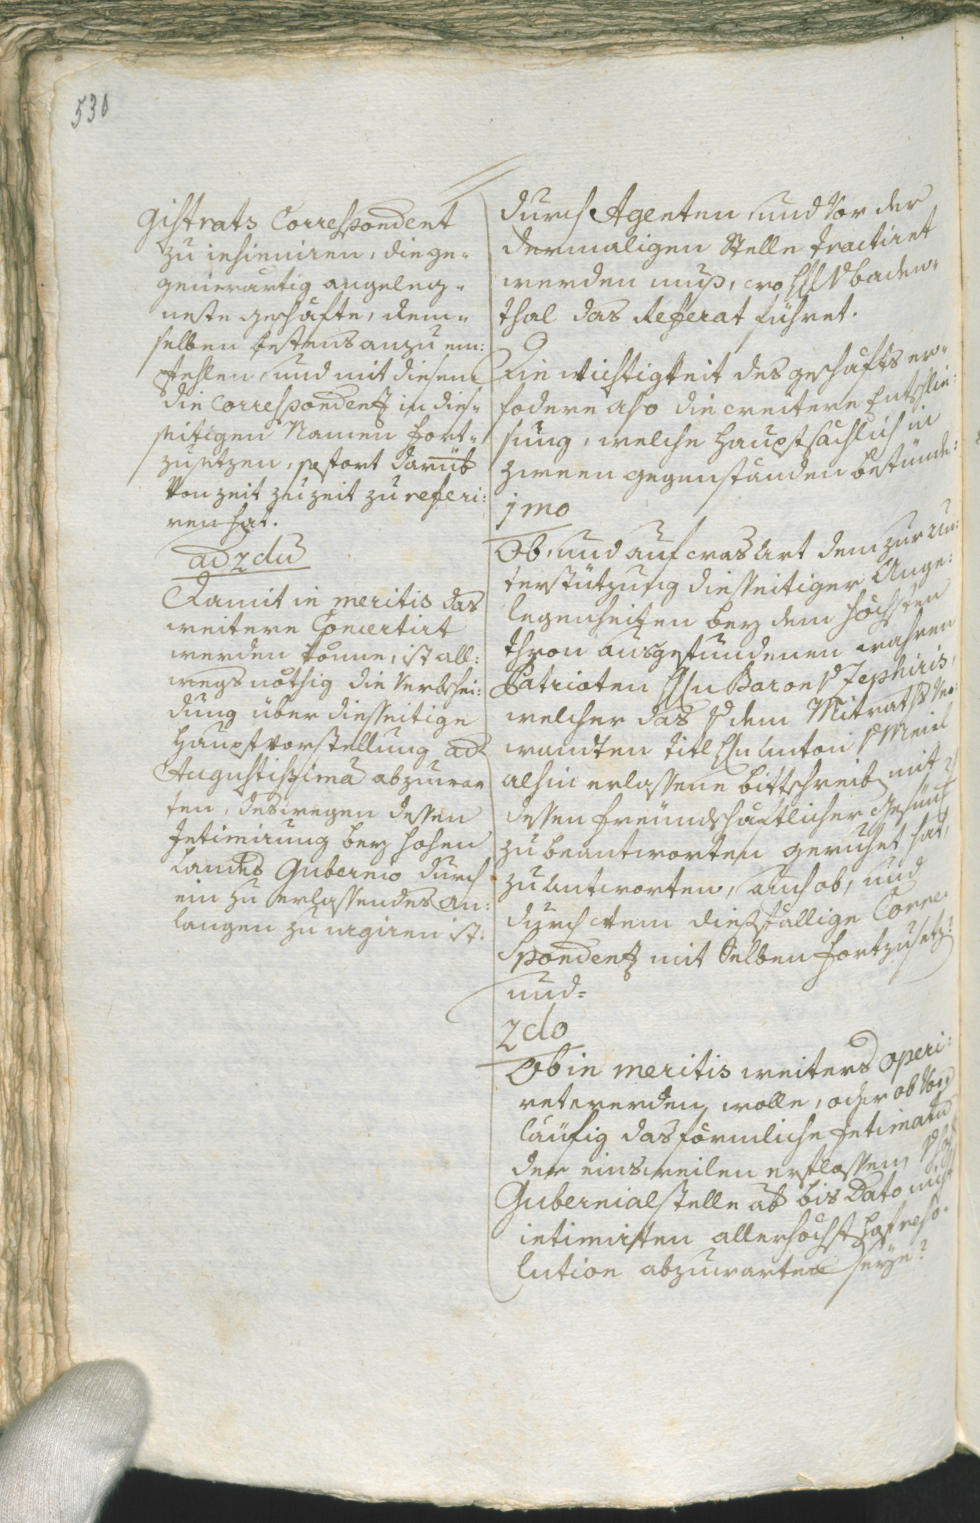 530
gistrats Correspondent
zu insinuiren, die ge-
genwärtig angeleg-
neste geschäfte, dem-
selben bestens anzuem-
pfehlen, und mit diesem
die Correspondenz in dies-
seitigen Namen fort-
zusetzen, sofort darüb
von zeit zu zeit zu referi-
ren hat.
ad 2dū
Damit in meritis das
weitere Concertirt
werden könne, ist all-
wegs nöthig die Verbschei-
dung über diesseitige
Hauptvorstellung ad
Augustissimā abzuwar
ten, deswegen dessen
Intimirung bey hohen
Landes Gubernio durch
ein zu erlassendes an-
langen zu urgiren ist.
durch Agenten, und vor der
dermaligen Stelle tractiret
werden muß, wo baden-
thal das Referat führet.
Die Wichtigkeit des geschäfts er-
fodere also die weitere Entschlie-
sung, welche hauptsächlich in
zween gegenständen bestünde:
1mo
Ob, und auf was Art dem zur un-
terstützung diesseitiger Ange-
legenheiten bey dem höchsten
Thron ausgestandenen wahren
Patrioten Baron v Zephiris,
welcher das v dem Mitraths Ver-
wandten titl Hn Anton v
alhin erlassene bittschreib mit
dessen freundschaftlicher
zu beantworten geruhet hat,
zu antworten, auch ob, und
durch wem diesfällige Corre-
spondenz mit Selben fortzusetz
und-
2do
Ob in meritis weiters operi-
ret werden wolle, oder ob vor-
läufig das förmliche Intimatū
der einsweilen erstlossen,
Gubernialstelle ab bis Dato nicht
intimirten allerhöchst hofreso-
lution abzuwarten seye?